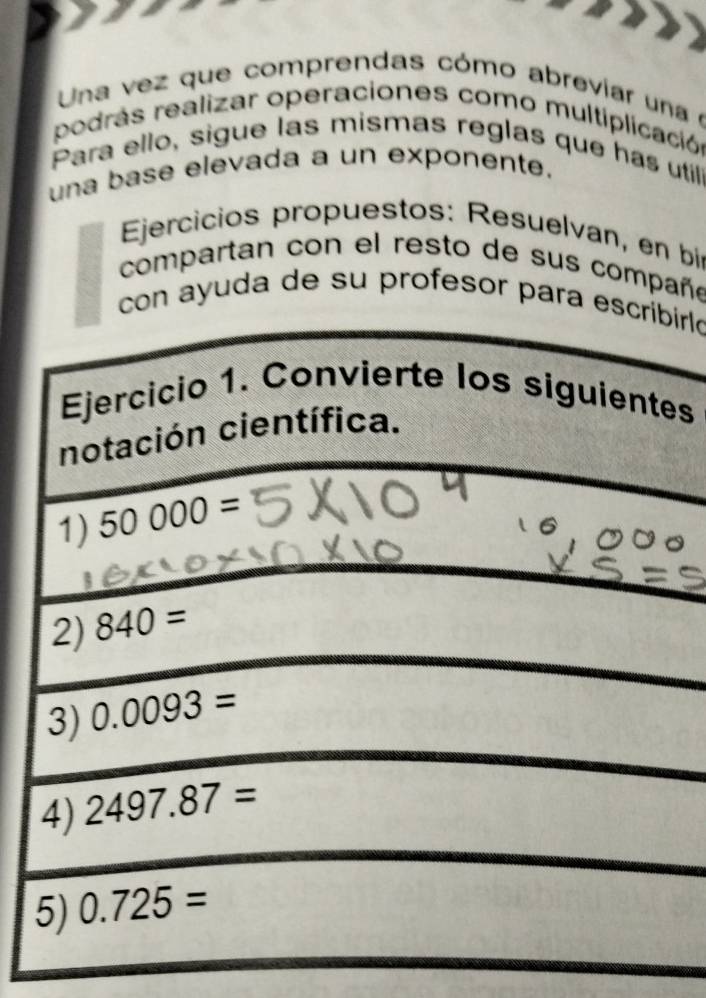 Una vez que comprendas cómo abreviar una
podrás realizar operaciones como multiplicación
Para ello, sigue las mismas reglas que has utili
una base elevada a un exponente.
Ejercicios propuestos: Resuelvan, en bin
compartan con el resto de sus compañe
con ayuda de su profesor para escribirlo
Ejercicio 1. Convierte los siguientes
notación científica.
1) 50 000 = 5X10⁴
10,000
10x10x10x10
x5=5
2) 840 =
3) 0.0093 =
4) 2497.87 =
5) 0.725 =